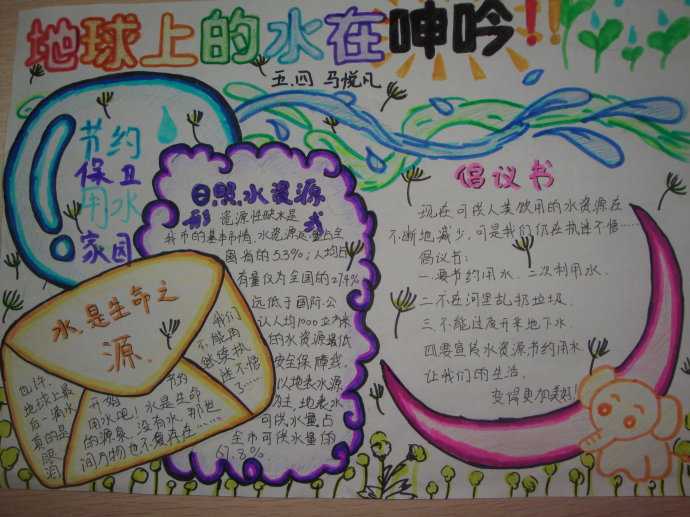 地球上的水在呻吟!!
五.四 马悦凡
节约
保卫
用水
家园
日照水资源
形 资源性缺水是 式
我市的基本市情,水资源总量占全
国有的5.33%;人均占
有量仅为全国的27.4%
远低于国际公
认人均1000立方米
的水资源最低
安全保障线。
以地表水源
为主,地表水
可供水量占
全市可供水量的
91.8%。
倡议书
现在可供人类饮用的水资源在
不断地减少,可是我们仍在执迷不悟……
倡议书:
一.要节约用水、二次利用水.
二不在河里乱扔垃圾.
三.不能过度开采地下水.
四要宣传水资源节约用水
让我们的生活,
变得更加美好!
水,是生命之
源.
我们
不能再
继续执
迷不悟
了……
也许,
地球上最
后一滴水
真的是
眼泪
开始 节约
用水吧!水是生命
的源泉,没有水,那世
间万物也不复存在……